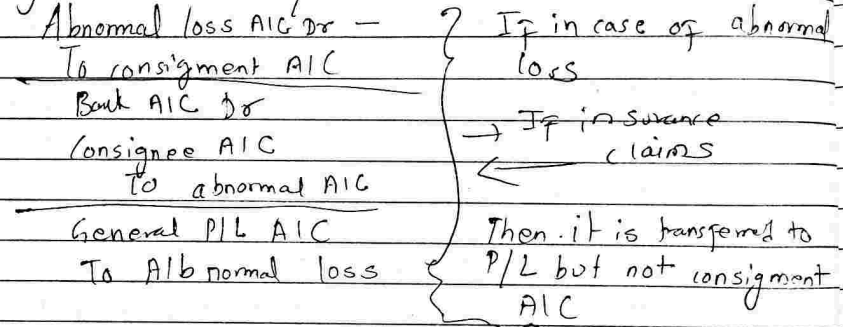 Abnormal loss A/C Dr —
To consigment A/C
Bank A/C Dr
Consignee A/C
To abnormal A/C
General P/L A/C
To A/b normal loss
If in case of abnormal
loss
→ If insurance
claims
Then it is transferred to
P/L but not consigment
A/C